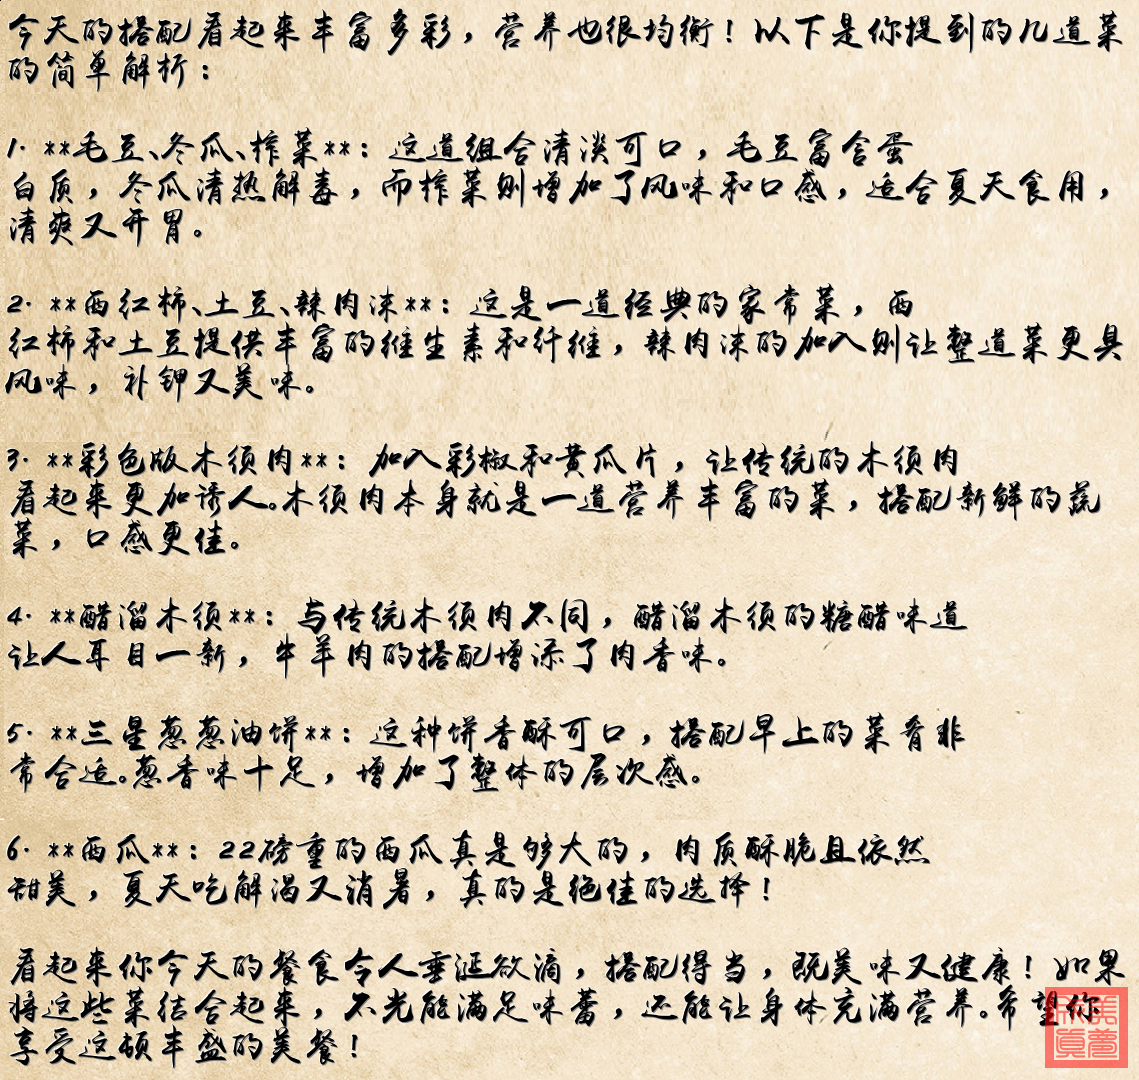 今天的搭配看起来丰富多彩，营养也很均衡！以下是你提到的几道菜
的简单解析：
1. **毛豆、冬瓜、榨菜**：这道组合清淡可口，毛豆富含蛋
白质，冬瓜清热解毒，而榨菜则增加了风味和口感，适合夏天食用，
清爽又开胃。
2. **西红柿、土豆、辣肉沫**：这是一道经典的家常菜，西
红柿和土豆提供丰富的维生素和纤维，辣肉沫的加入则让整道菜更具
风味，补钾又美味。
3. **彩色版木须肉**：加入彩椒和黄瓜片，让传统的木须肉
看起来更加诱人。木须肉本身就是一道营养丰富的菜，搭配新鲜的蔬
菜，口感更佳。
4. **醋溜木须**：与传统木须肉不同，醋溜木须的糖醋味道
让人耳目一新，牛羊肉的搭配增添了肉香味。
5. **三星葱葱油饼**：这种饼香酥可口，搭配早上的菜肴非
常合适。葱香味十足，增加了整体的层次感。
6. **西瓜**：22磅重的西瓜真是够大的，肉质酥脆且依然
甜美，夏天吃解渴又消暑，真的是绝佳的选择！
看起来你今天的餐食令人垂涎欲滴，搭配得当，既美味又健康！如果
将这些菜结合起来，不光能满足味蕾，还能让身体充满营养。希望你
享受这顿丰盛的美餐！